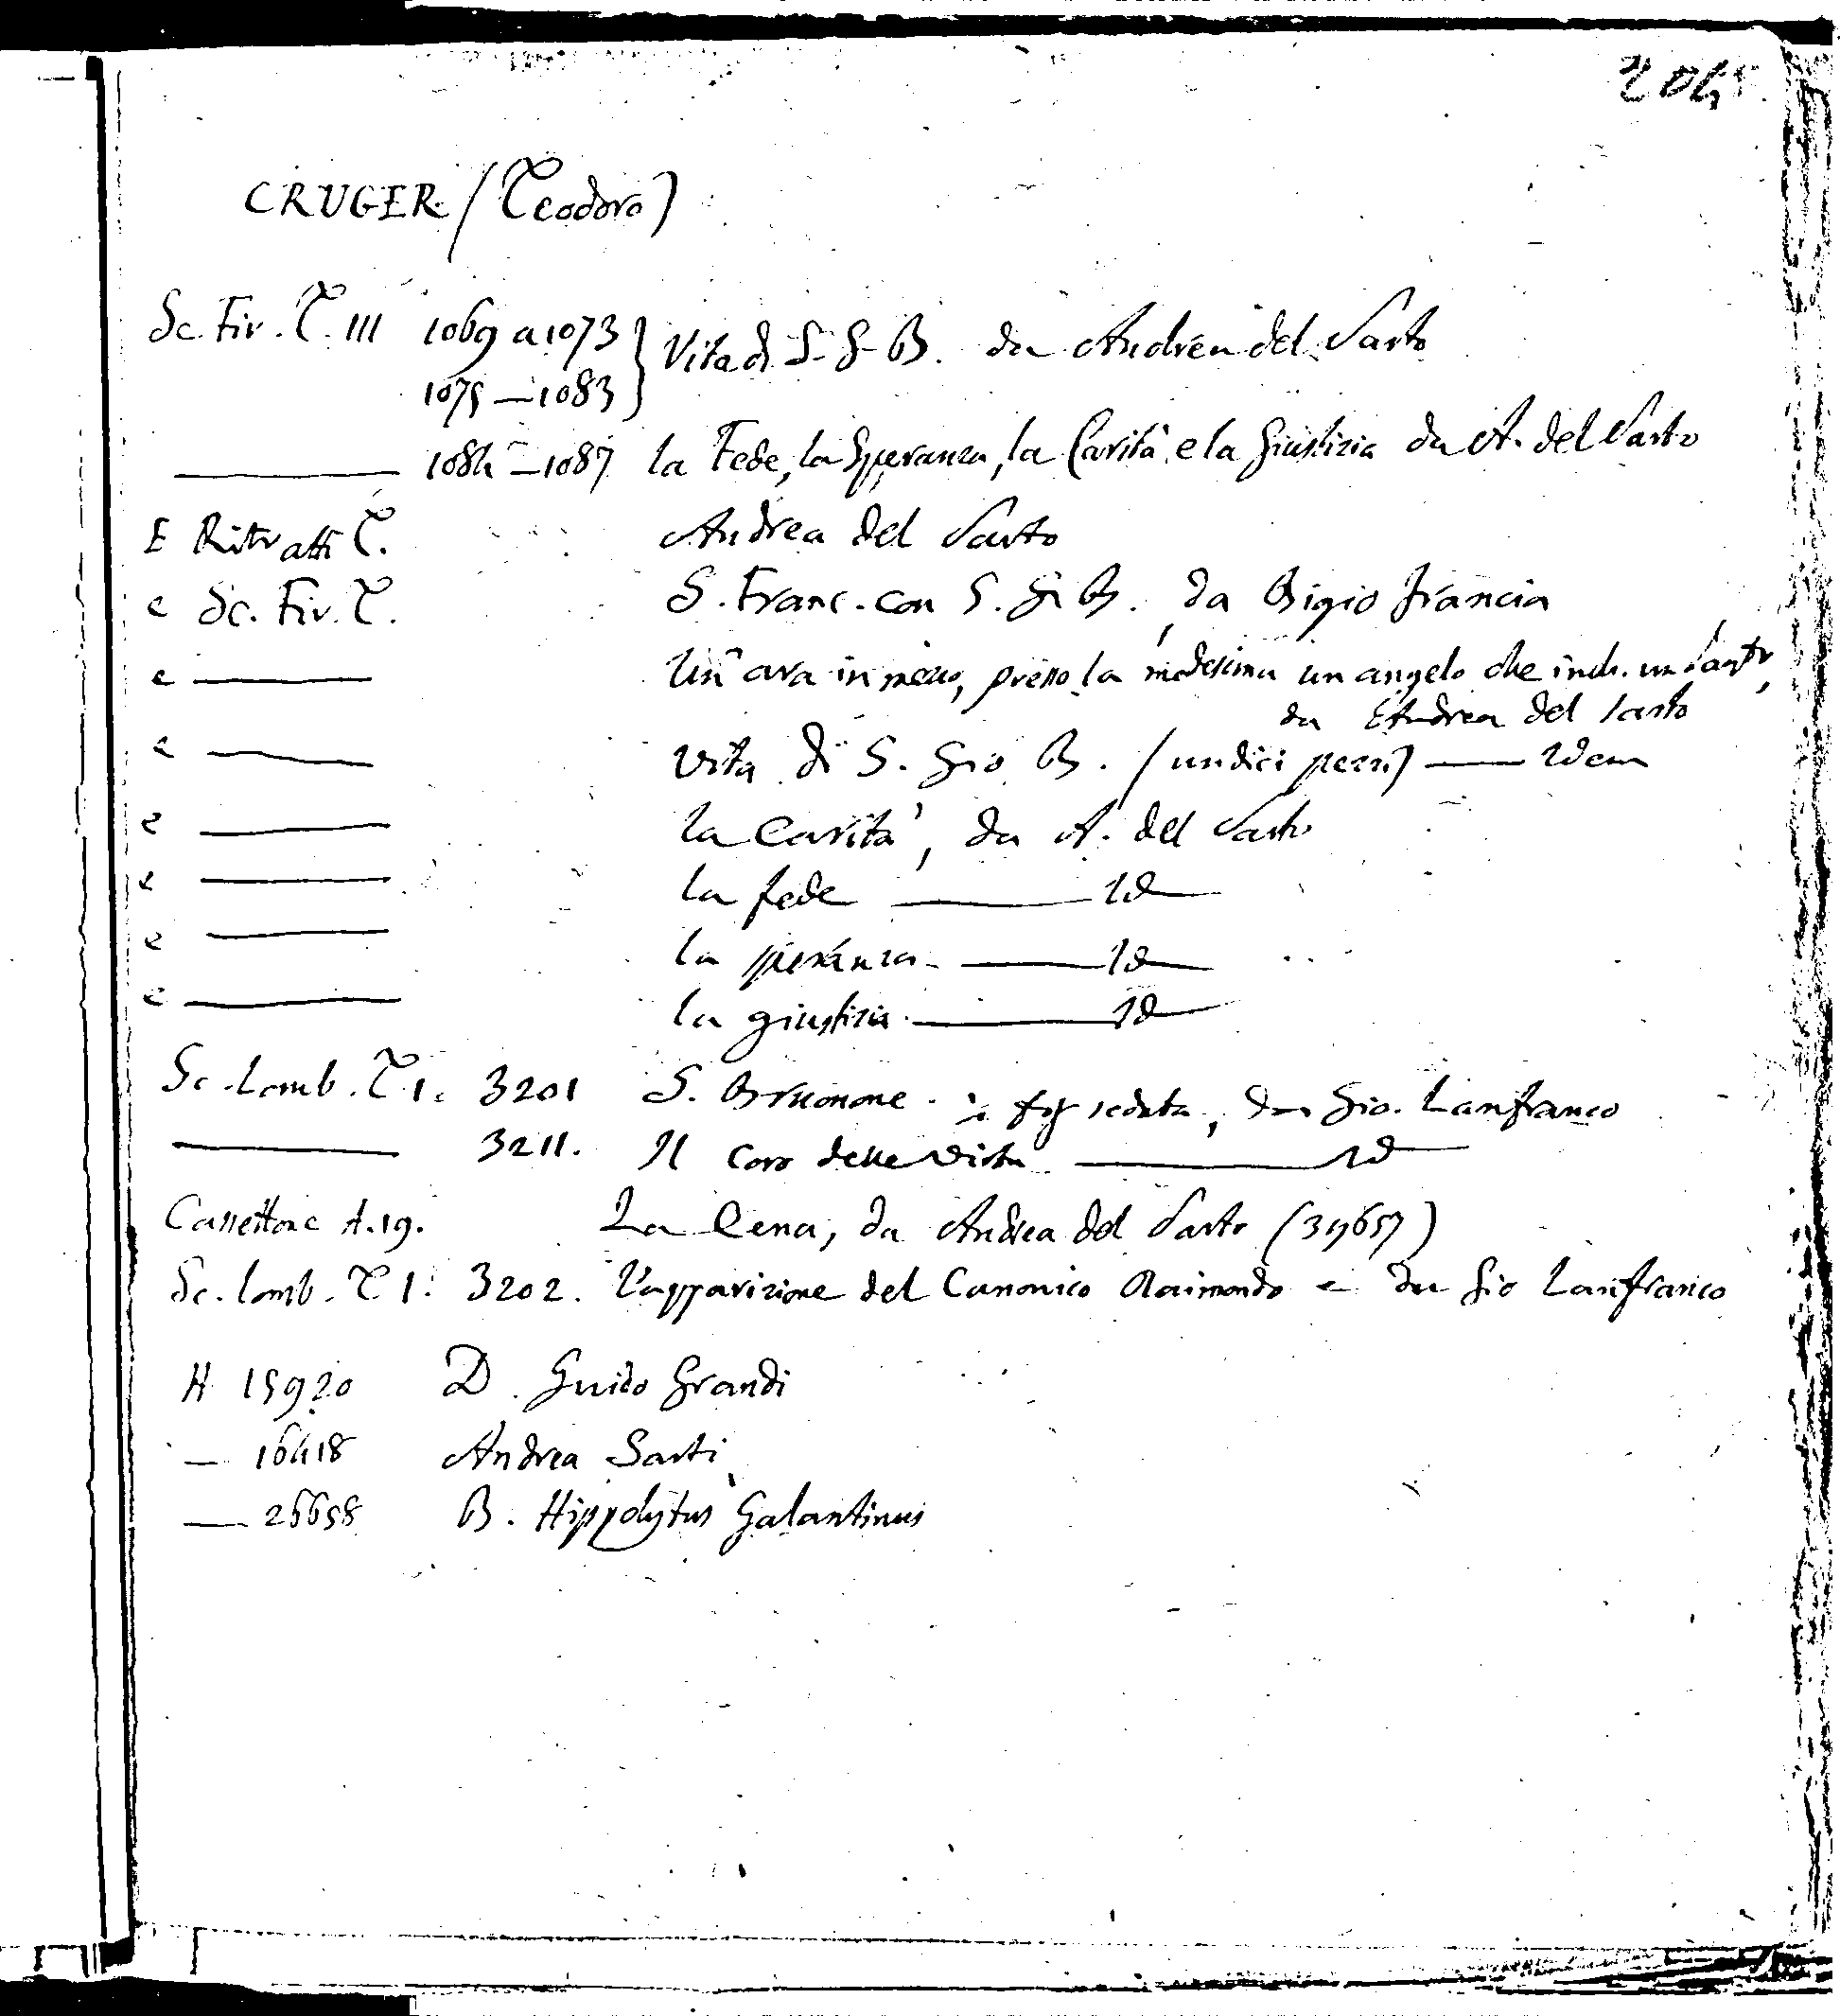 2045
CRUGER (Teodoro)
Sc. Fir. T. III 1069 a 1073 } Vita di S. G. B. da Andrea del Sarto
1075 — 1083
——— 1084 — 1087 la Fede, la Speranza, la Carità e la Giustizia da A. del Sarto
E Ritratti T. Andrea del Sarto
e Sc. Fir. T. S. Franc. con S. Gi B., da Bigio francia
e ——— Un'ara in mezzo, presso la medesima un angelo che inch. un Santo,
da Andrea del Sarto
e ——— Vita di S. Gio B. (undici pezzi) ——— Idem
e ——— la Carità, da A. del Sarto
e ——— la fede ——— Id
e ——— la speranza ——— Id
e ——— la giustizia ——— Id
Sc. Lomb. T. I. 3201 S. Brunone fig sedata, da Gio. Lanfranco
——— 3211. Il Coro delle ——— Id
Cassettone A. 19. La Cena, da Andrea del Sarto (34657)
Sc. Lomb. T I. 3202. L'apparizione del Canonico Raimondo — da Gio Lanfranco
H 15920 D. Guido Grandi
— 16418 Andrea Sarti
— 26658 B. Hippolytus Galantinus